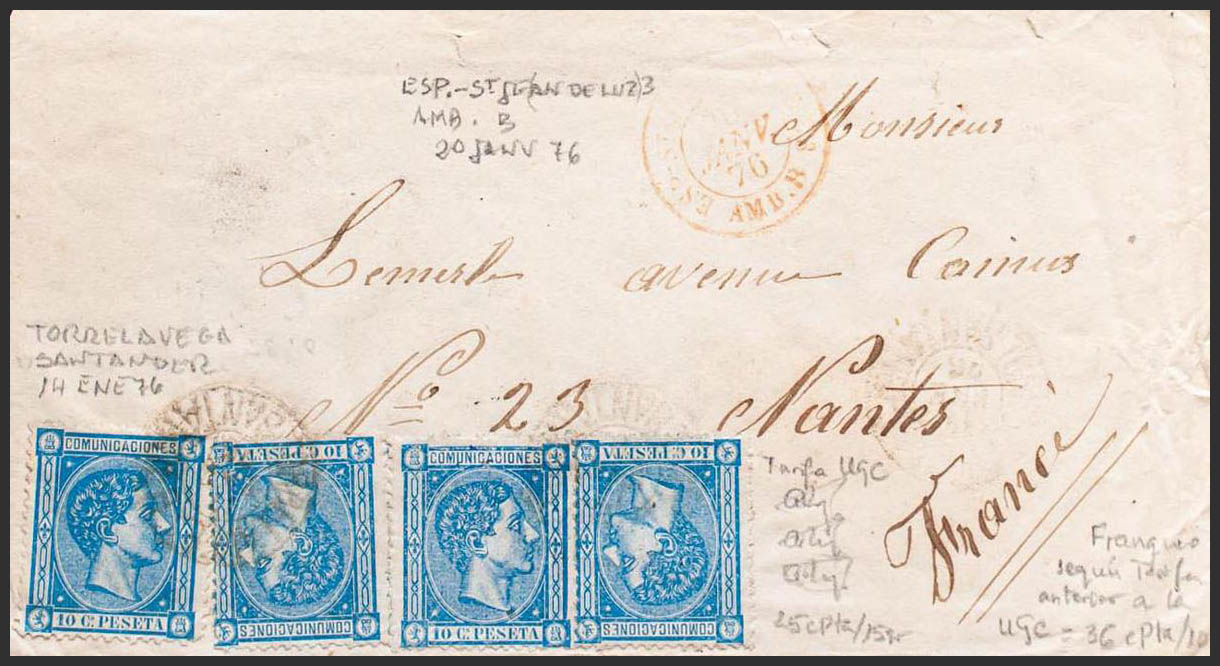 ESP.-ST JE(AN DE LUZ)3
AMB. B
20 JANV 76
JANV
76
ESP.
AMB. B
Monsieur
avenue Camus
TORRELAVEGA
SANTANDER
14 ENE 76
Nº 23 Nantes
France
COMUNICACIONES
10 C. PESETA
10 C. PESETA
COMUNICACIONES
COMUNICACIONES
10 C. PESETA
10 C. PESETA
COMUNICACIONES
Tarifa UGC
25 cPta/15gr
Franqueo
según Tarifa
anterior a la
UGC = 36 cPta/10